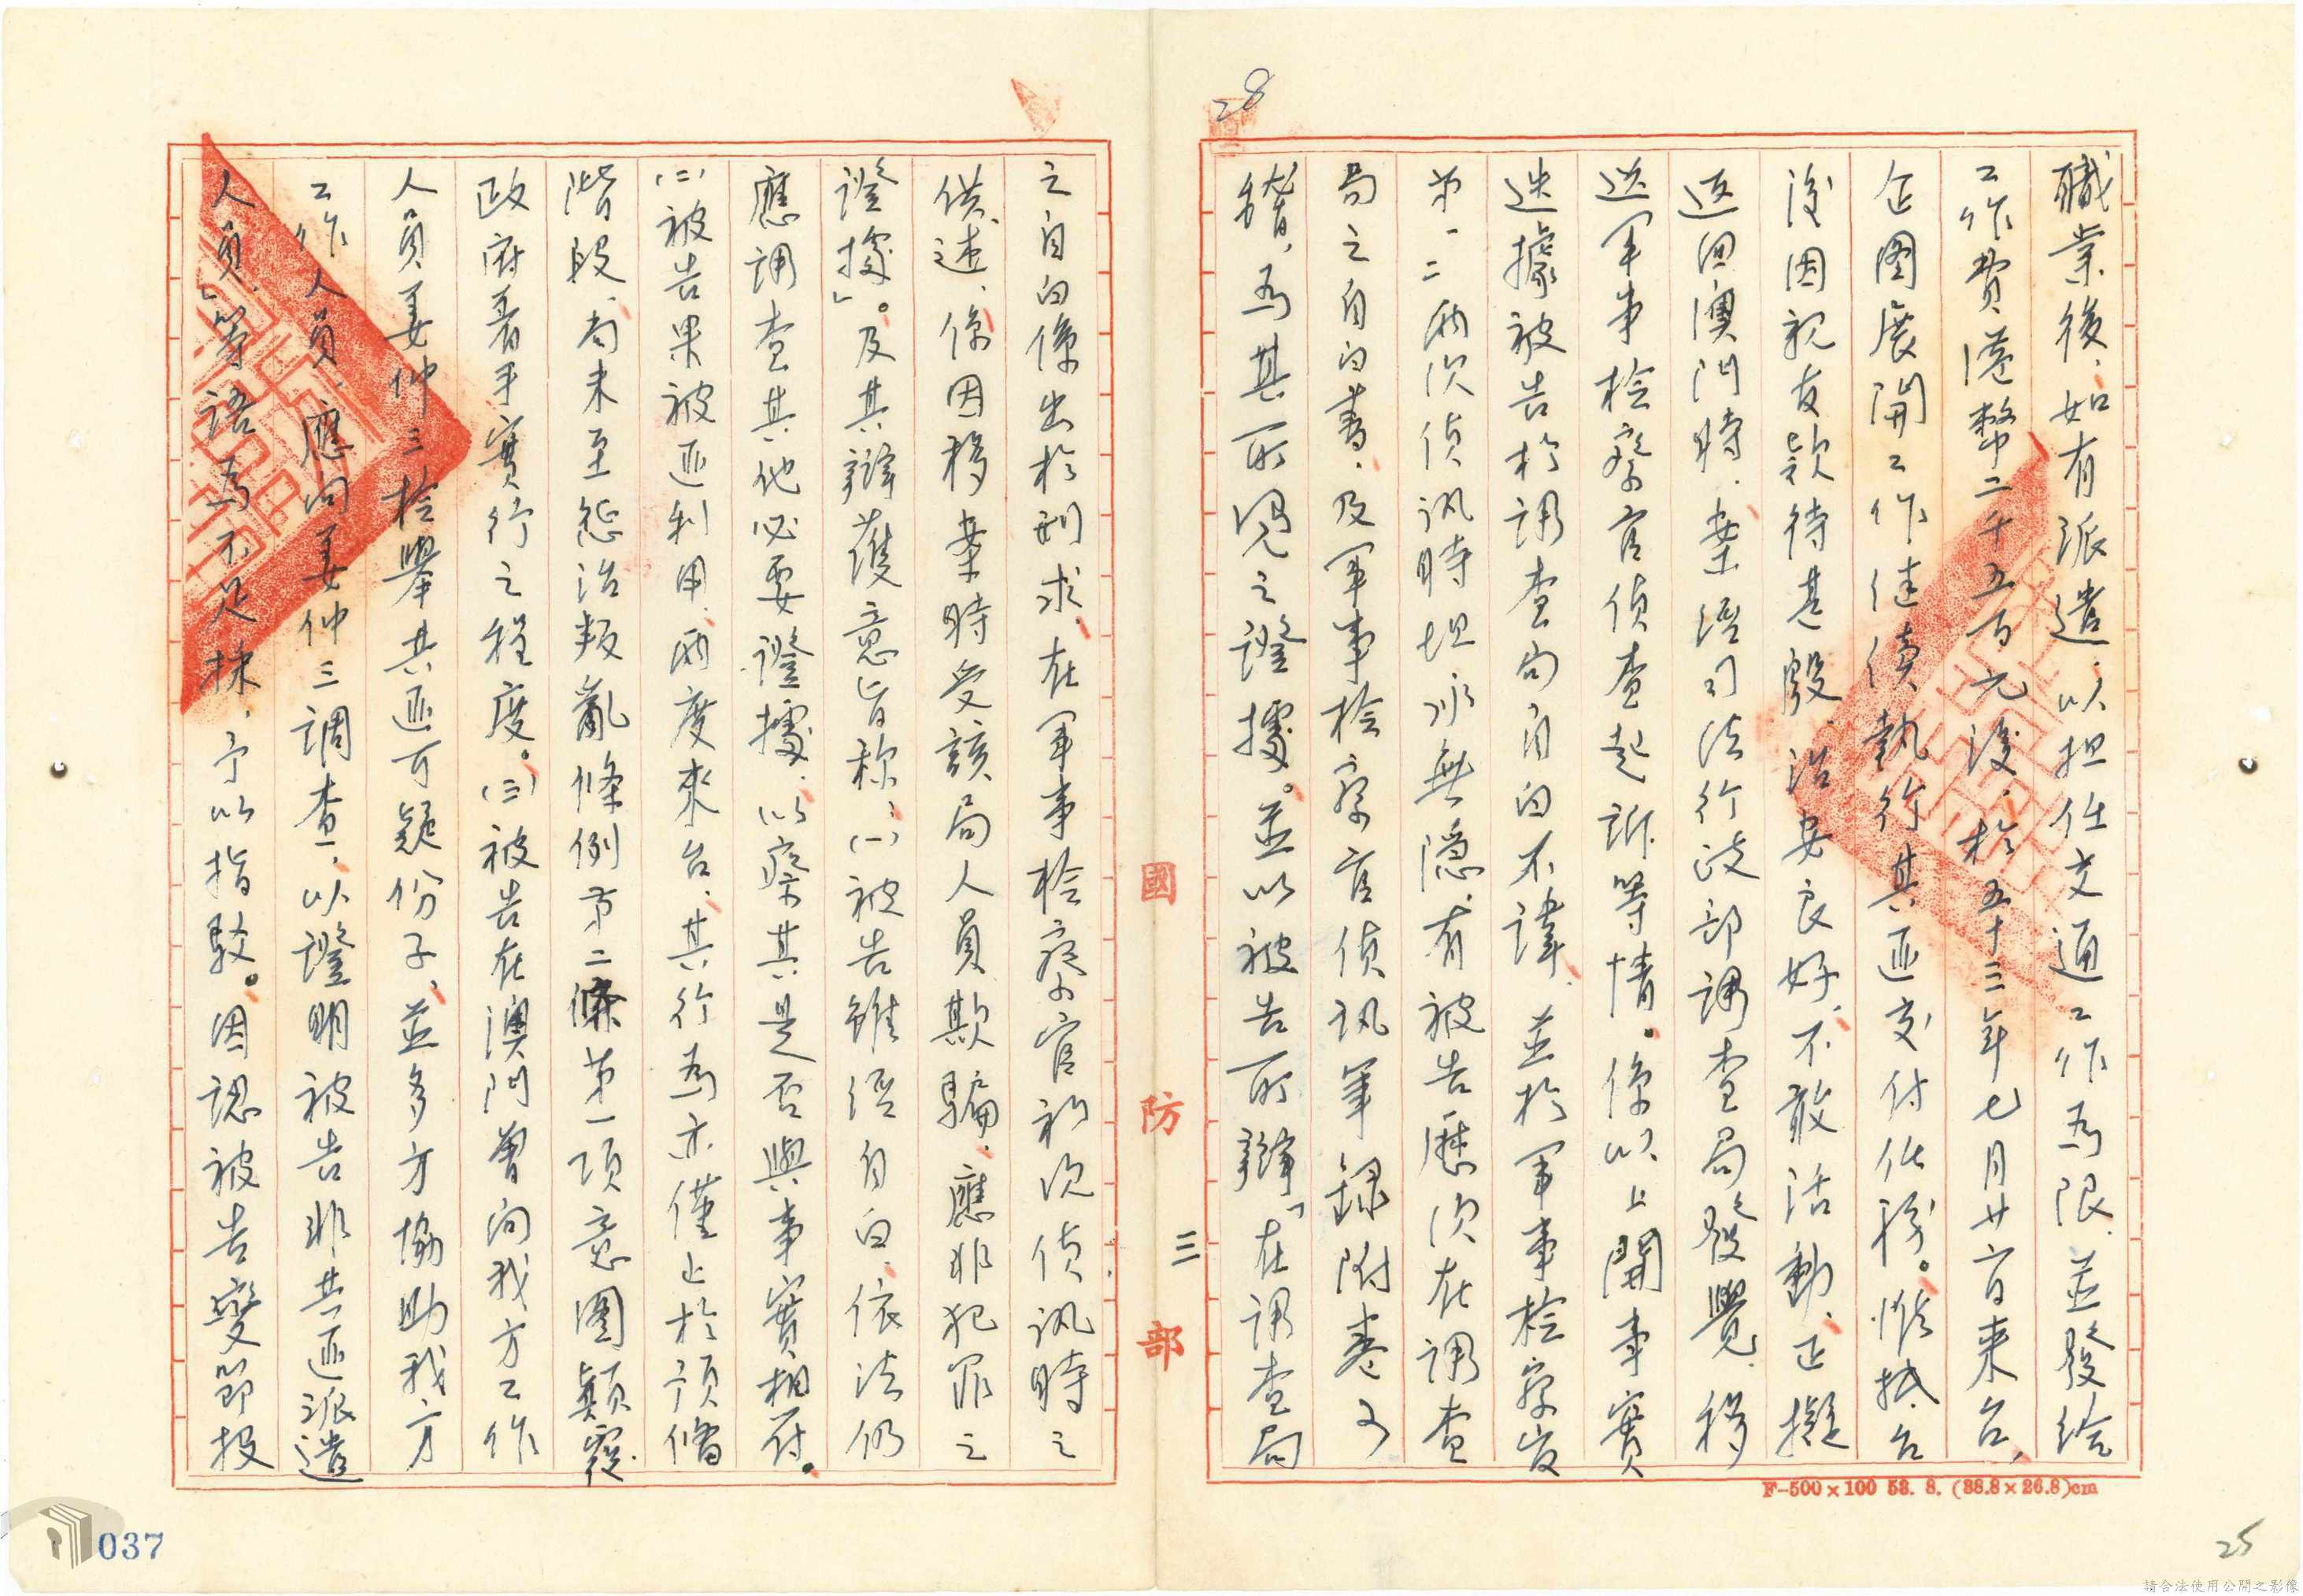 28
職業後，如有派遣，以担任交通工作為限，並發給
工作費港幣二千五百元後，於五十三年七月廿六日來台，
企图展開工作連續執行其匪交付任務。惟抵台
後因親友款待甚殷，治安良好，不敢活動，正擬
返回澳門時，案經司法行政部調查局發覺，移
送軍事檢察官偵查起訴等情。係以上開事實
迭據被告於調查局自白不諱，並於軍事檢察官
第一二兩次偵訊時坦承無隱，有被告歷次在調查
局之自白書，及軍事檢察官偵訊筆錄附卷可
稽，為其所憑之證據。並以被告所辯「在調查局
國防部
三
之自白係出於刑求，在軍事檢察官初次偵訊時之
供述，係因移案時受該局人員欺騙，應非犯罪之
證據」。及其辯護意旨称：(一)被告雖經自白，依法仍
應調查其他必要證據，以察其是否與事實相符。
(二)被告果被匪利用，兩度來台，其行為亦僅止於預備
階段，尚未至懲治叛亂條例第二條第一項意圖顛覆
政府着手實行之程度。(三)被告在澳門曾向我方工作
人員姜仲三檢舉共匪可疑份子，並多方協助我方
工作人員，應向姜仲三調查，以證明被告非共匪派遣
人員」等語為不足採，予以指駁。因認被告變節投
F-500×100 53. 8. (38.8×26.8)cm
037
25
請合法使用公開之影像